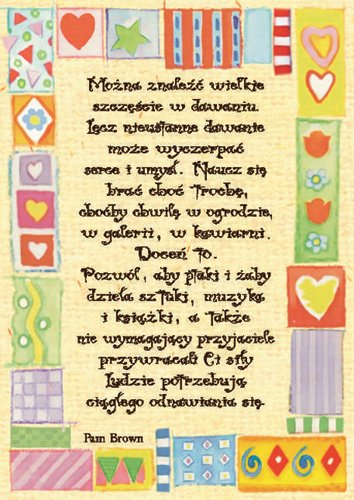 Można znaleźć wielkie
szczęście w dawaniu.
Lecz nieustanne dawanie
może wyczerpać
serce i umysł. Naucz się
brać choć trochę,
choćby chwilę w ogrodzie,
w galerii, w kawiarni.
Doceń to.
Pozwól, aby ptaki i żaby
dzieła sztuki, muzyka
i książki, a także
nie wymagający przyjaciele
przywracali Ci siły
Ludzie potrzebują
ciągłego odnawiania się.
Pam Brown